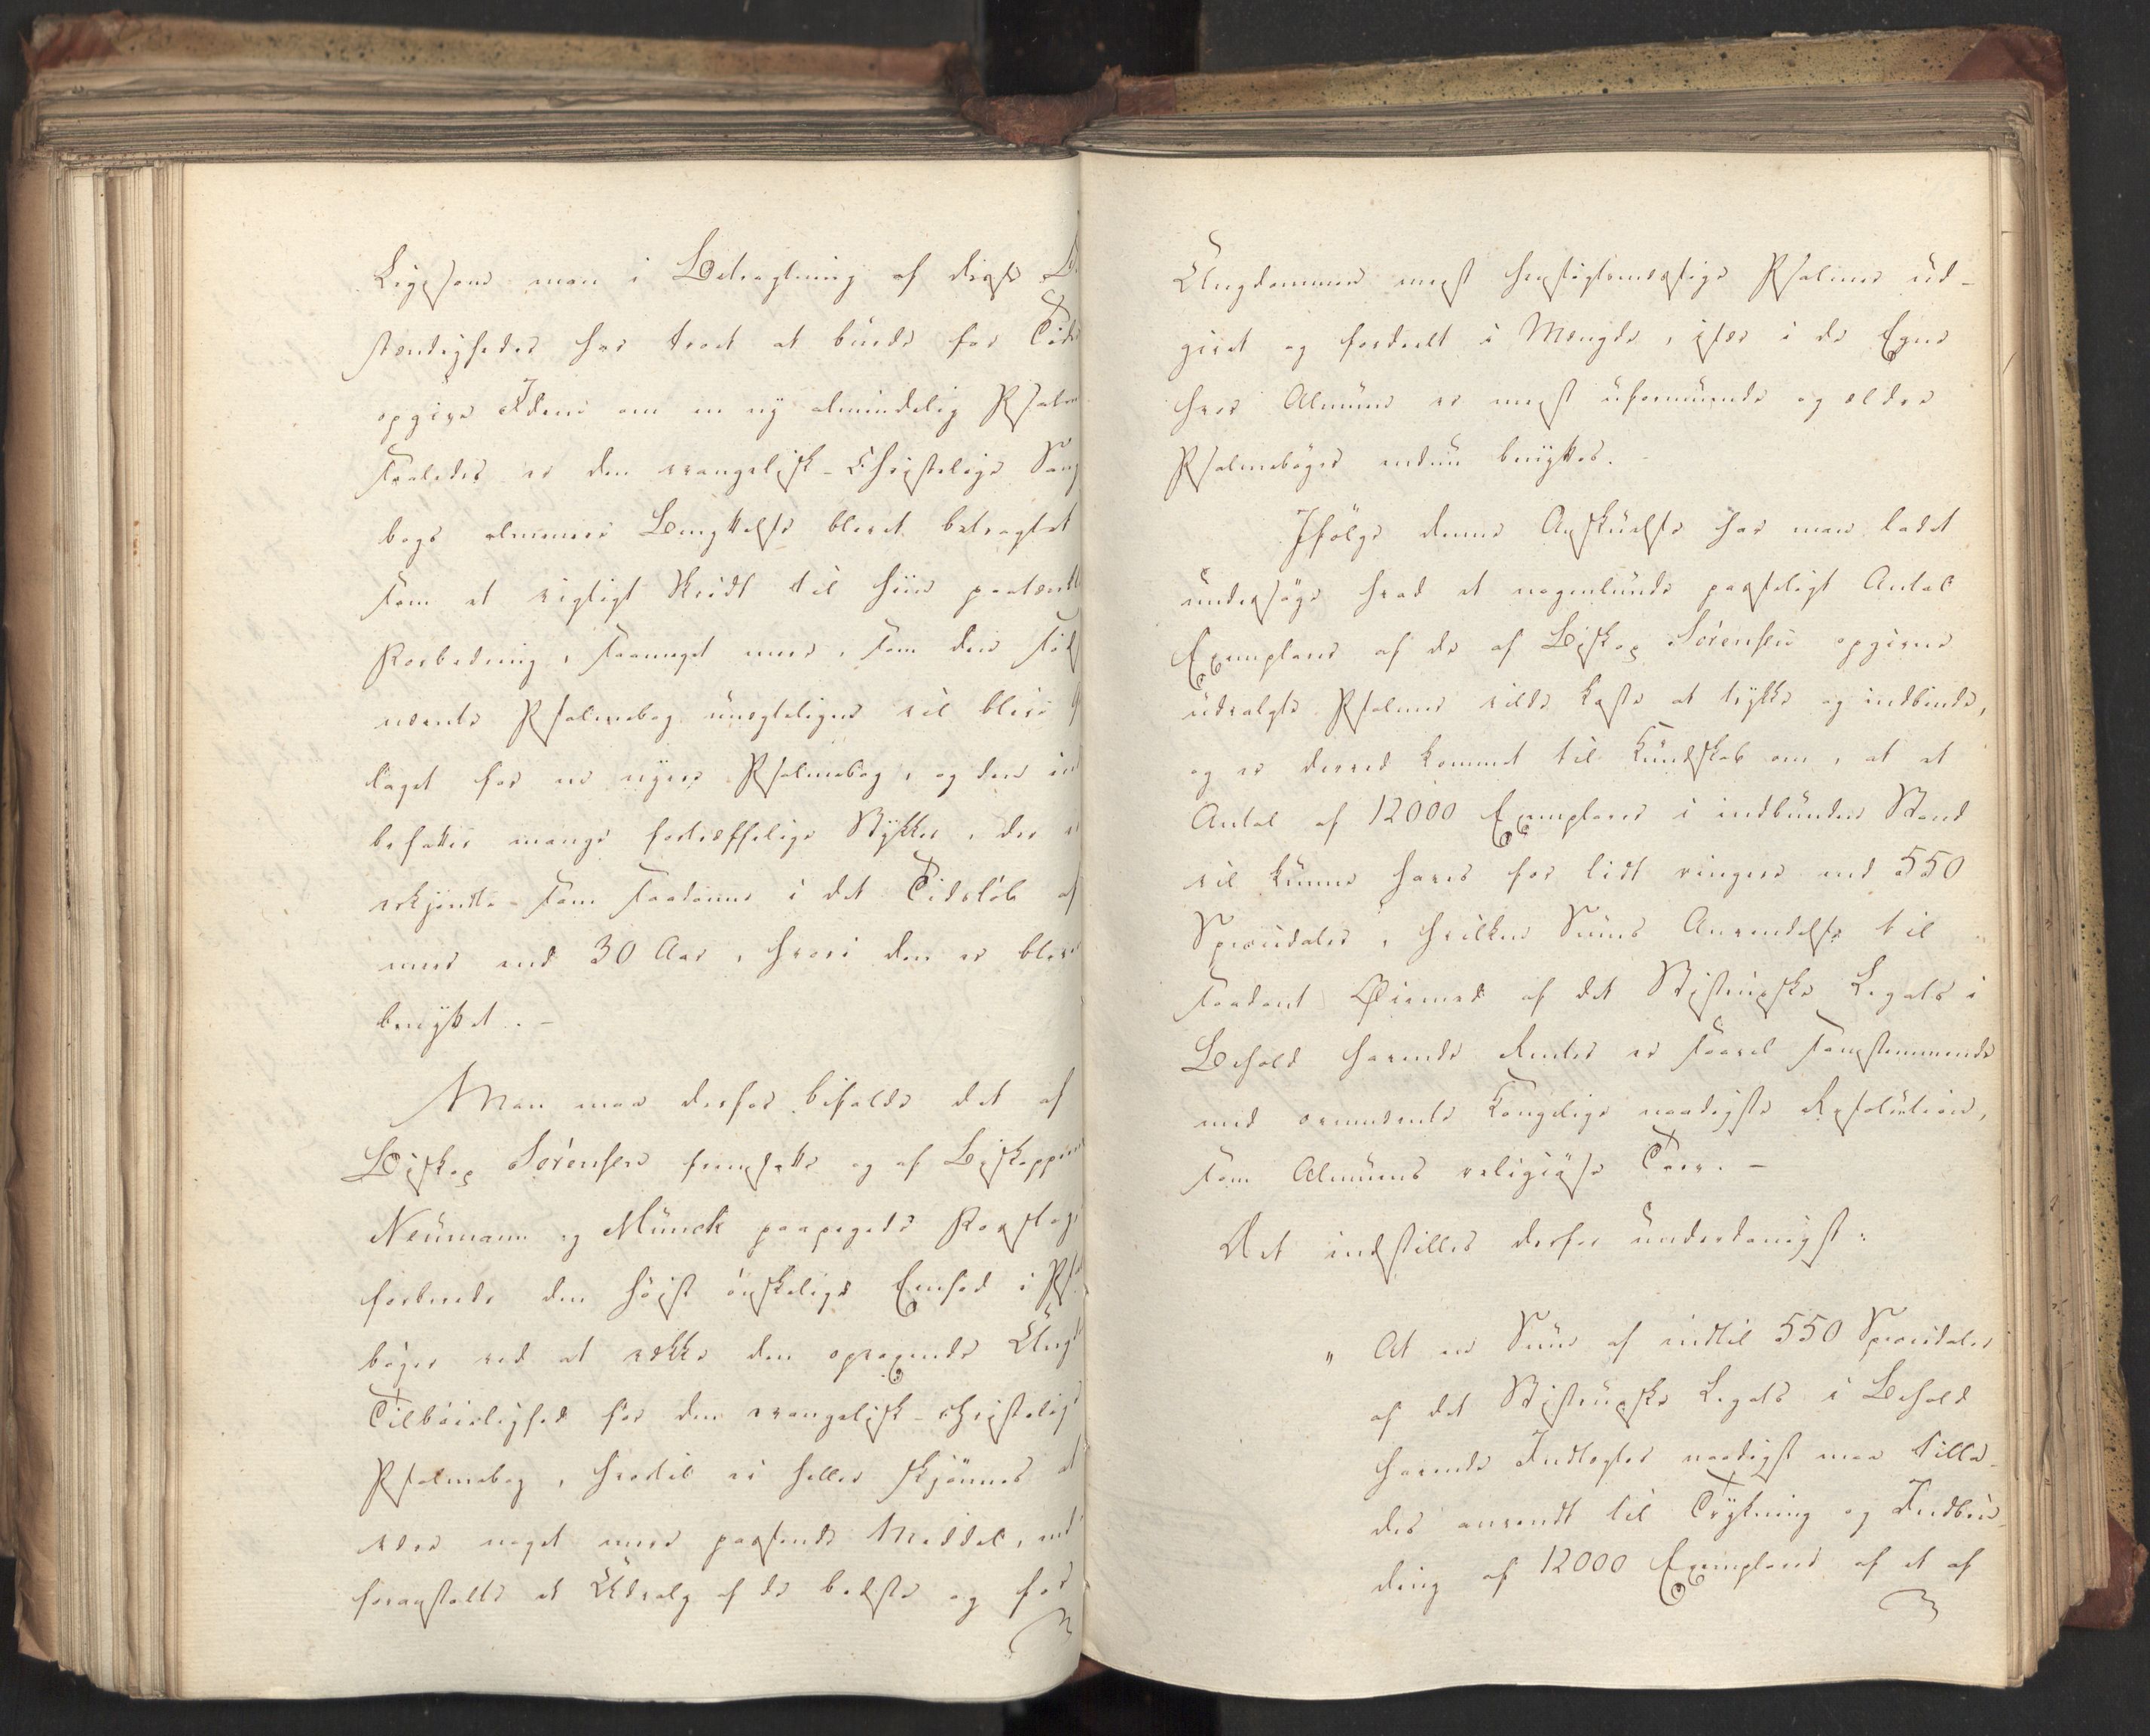 Ligesom man i Betragtning af disse
stændigheder har troet at burde for Tiden
opgive Ideen om en ny almindelig Psalme
saaledes er den evangelisk-Christelige Sang
bogs almenere Benyttelse blevet betragtet
som et vigtigt Skridt til hiin paatænkte
Forbedring, saameget mere, som den sidst
nævnte Psalmebog unægteligen vil blive
laget for en nyere Psalmebog, og den in
befatter mange fortræffelige Stykker, der er
erkjendte som saadanne i det Tidsløb af
mere end 30 Aar, hvori den er bleven
benyttet. -
Man maa derfor bifalde det af
Biskop Sörensen fremsatte og af Biskopperne
Neumann og Münck paapegede Forslag
forberede den höist önskelige Eenhed i Ps
böger ved at vække den opvoxende Ung
Tilböielighed for den evangelisk-christelige
Psalmebog, hvortil ei heller skjönnes at
være noget mere passende Middel, end
foranstalte et Udvalg af de bedste og for
Ungdommen meest hensigtsmæssige Psalmer ud-
givet og fordeelt i Mængde, især i de Egne
hvor Almuen er meest uformuende og ældre
Psalmeböger endnu benyttes. -
Ifölge denne Anskuelse har man ladet
undersöge hvad et nogenlunde passeligt Antal
Exemplarer af de af Biskop Sörensen opgivne
udvalgte Psalmer vilde koste at trykke og indbinde,
og er derved kommet til Kundskab om, at et
Antal af 12000 Exemplarer i indbunden Stand
vil kunne haves for lidt ringere end 550
Speciedaler, hvilken Sums Anvendelse til
saadant Øiemed af det Stistrupske Legats i
Behold havende Renter er saavel samstemmende
med ovennævnte Kongelige naadigste Resolution,
som Almuens religiøse Tarv. -
Det indstilles derfor underdanigst:
„ At en Sum af indtil 550 Speciedaler
af det Stistrupske Legats i Behold
havende Indtægter naadigst maa tilla-
des anvendt til Trykning og Indbin-
ding af 12000 Exemplarer af et af